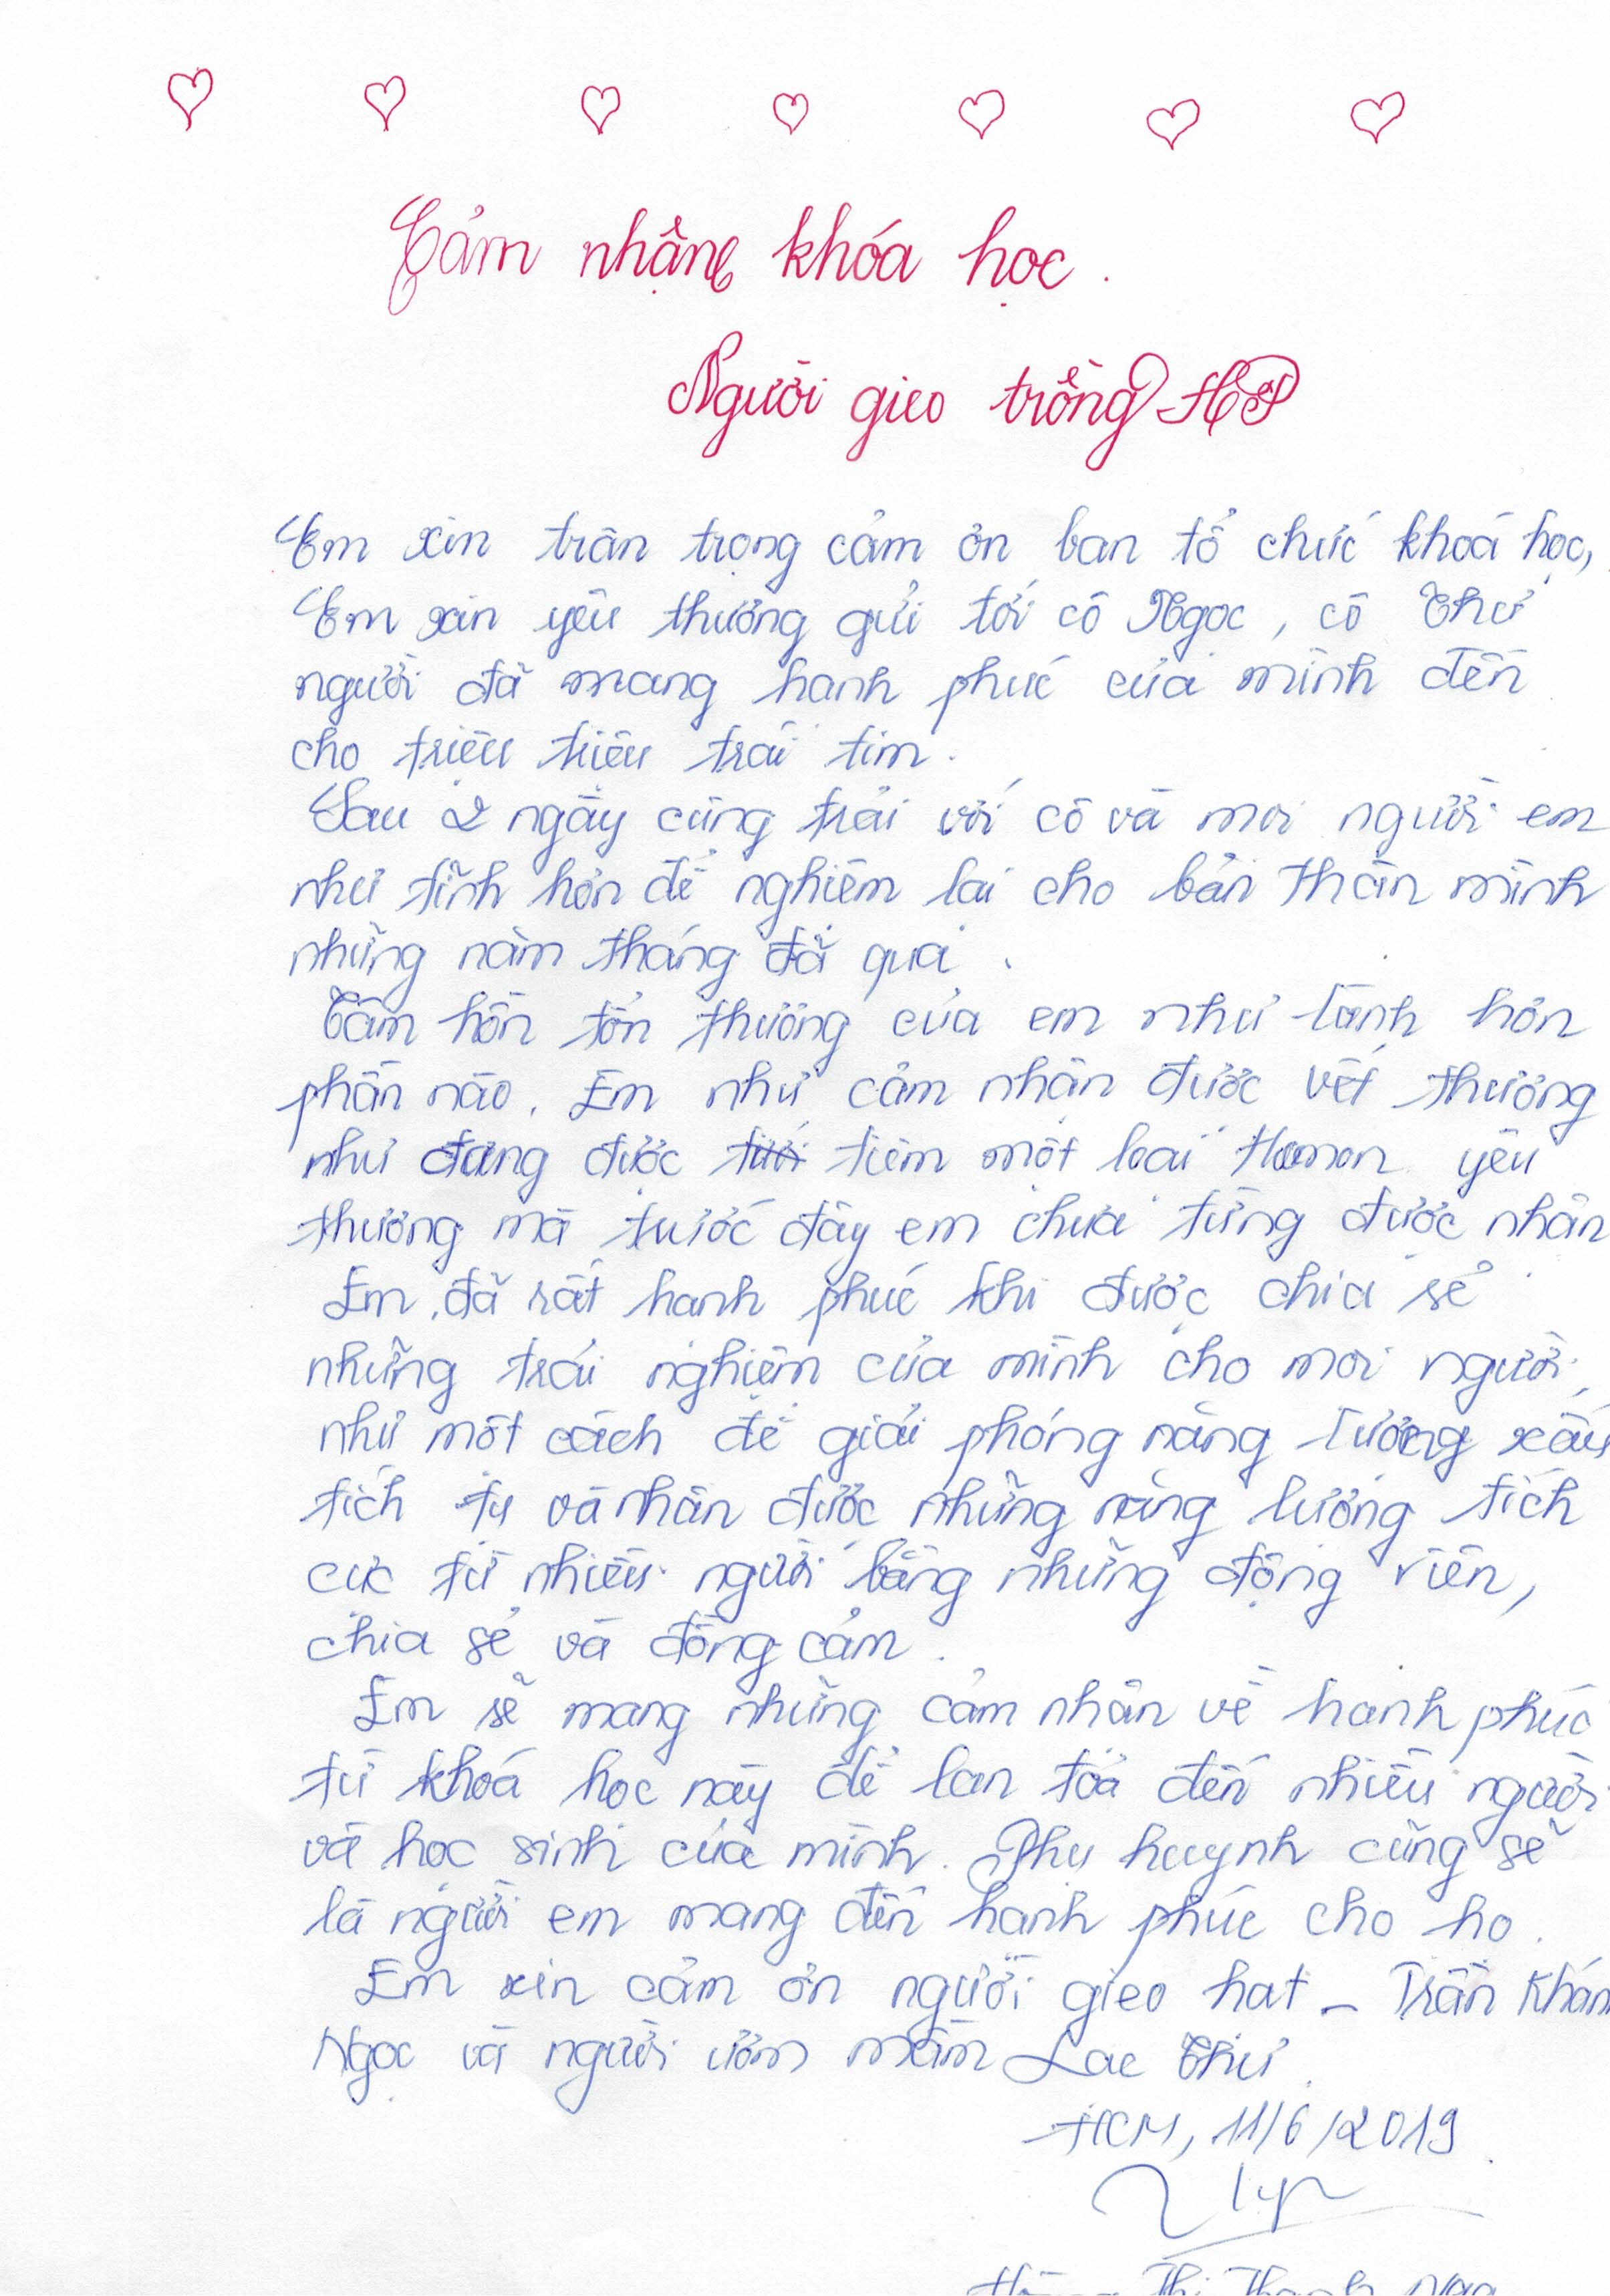 Cảm nhận khóa học.
Người gieo trồng HP
Em xin trân trọng cảm ơn ban tổ chức khoá học,
Em xin yêu thương gửi tới cô Ngọc, cô Thư
người đã mang hạnh phúc của mình đến
cho triệu triệu trái tim.
Sau 2 ngày cùng trải với cô và mọi người em
như tĩnh hơn để nghiệm lại cho bản thân mình
những năm tháng đã qua.
Tâm hồn tổn thương của em như lành hơn
phần nào. Em như cảm nhận được vết thương
như đang được tiêm một loại Hoomon yêu
thương mà trước đây em chưa từng được nhận
Em đã rất hạnh phúc khi được chia sẻ
những trải nghiệm của mình cho mọi người,
như một cách để giải phóng năng lượng xấu
tích tụ và nhận được những năng lượng tích
cực từ nhiều người bằng những động viên,
chia sẻ và đồng cảm.
Em sẽ mang những cảm nhận về hạnh phúc
từ khoá học này để lan toả đến nhiều người
và học sinh của mình. Phụ huynh cũng sẽ
là người em mang đến hạnh phúc cho họ.
Em xin cảm ơn người gieo hạt - Trần Khán
Ngọc và người ươm mầm Lạc Thư.
HCM, 11/6/2019
Thị Thanh Nga